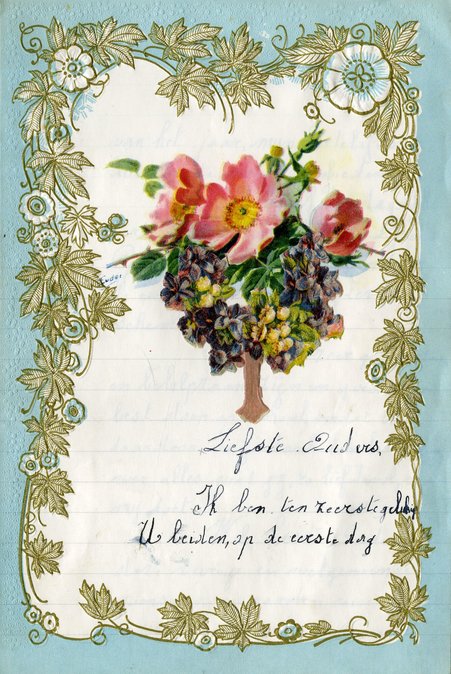 Liefste Ouders,
Ik ben ten zeerste gelukkig
U beiden, op de eerste dag